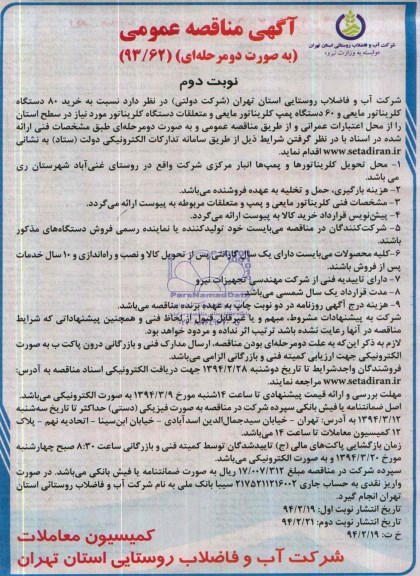 آگهی مناقصه عمومی
(به صورت دومرحله‌ای) (۹۳/۶۲)
شرکت آب و فاضلاب روستایی استان تهران
«وابسته به وزارت نیرو»
نوبت دوم
شرکت آب و فاضلاب روستایی استان تهران (شرکت دولتی) در نظر دارد نسبت به خرید ۸۰ دستگاه
کلریناتور مایعی و ۶۰ دستگاه پمپ کلریناتور مایعی و متعلقات دستگاه کلریناتور مورد نیاز در سطح استان
را از محل اعتبارات عمرانی و از طریق مناقصه عمومی و به صورت دومرحله‌ای طبق مشخصات فنی ارائه
شده در اسناد با در نظر گرفتن شرایط ذیل از طریق سامانه تدارکات الکترونیکی دولت (ستاد) به نشانی
www.setadiran.ir اقدام نماید.
۱- محل تحویل کلریناتورها و پمپ‌ها انبار مرکزی شرکت واقع در روستای غنی‌آباد شهرستان ری
می باشد.
۲- هزینه بارگیری، حمل و تخلیه به عهده فروشنده می‌باشد.
۳- مشخصات فنی کلریناتور مایعی و پمپ و متعلقات مربوطه به پیوست ارائه می‌گردد.
۴- پیش‌نویس قرارداد خرید کالا به پیوست ارائه می‌گردد.
۵- شرکت‌کنندگان در مناقصه می‌بایست خود تولیدکننده یا نماینده رسمی فروش دستگاه‌های مذکور
باشند.
۶-کلیه محصولات می‌بایست دارای یک سال گارانتی پس از تحویل کالا و نصب و راه‌اندازی و ۱۰ سال خدمات
پس از فروش باشند.
۷- دارای تاییدیه فنی از شرکت مهندسی تجهیزات نیرو
۸- مدت قرارداد یک سال شمسی می‌باشد.
۹- هزینه درج آگهی روزنامه در دو نوبت چاپ به عهده برنده مناقصه می‌باشد.
شرکت به پیشنهادات مشروط، مبهم و یا غیرقابل قبول از لحاظ فنی و همچنین پیشنهاداتی که شرایط
مناقصه در آنها رعایت نشده باشد ترتیب اثر نداده و مردود خواهد بود.
لازم به ذکر این‌که به علت دومرحله‌ای بودن مناقصه، ارسال مدارک فنی و بازرگانی درون پاکت ب به صورت
الکترونیکی جهت ارزیابی کمیته فنی و بازرگانی الزامی می‌باشد.
فروشندگان واجدشرایط تا تاریخ دوشنبه ۱۳۹۴/۲/۲۸ جهت دریافت الکترونیکی اسناد مناقصه به آدرس:
www.setadiran.ir مراجعه نمایند.
مهلت بررسی و ارائه قیمت پیشنهادی تا ساعت ۱۴شنبه مورخ ۱۳۹۴/۳/۹ به صورت الکترونیکی می‌باشد.
اصل ضمانتنامه یا فیش بانکی سپرده شرکت در مناقصه به صورت فیزیکی (دستی) حداکثر تا تاریخ سه‌شنبه
۱۳۹۴/۳/۱۲ به آدرس: تهران - خیابان سیدجمال‌الدین اسدآبادی - خیابان ابن‌سینا - اتحادیه نهم - پلاک
۱۲ کمیسیون معاملات تا ساعت ۱۴ می‌باشد.
زمان بازگشایی پاکت‌های مالی (ج) تاییدشدگان توسط کمیته فنی و بازرگانی ساعت ۸:۳۰ صبح چهارشنبه
مورخ ۱۳۹۴/۳/۲۰ و به صورت الکترونیکی می‌باشد.
سپرده شرکت در مناقصه مبلغ ۱۷/۰۰۷/۳۱۲ ریال به صورت ضمانتنامه یا فیش بانکی می‌باشد. در صورت
واریز نقدی به حساب جاری ۲۱۷۵۲۱۱۲۱۶۰۰۲ سیبا بانک ملی به نام شرکت آب و فاضلاب روستایی استان
تهران انجام گیرد.
تاریخ انتشار نوبت اول: ۹۴/۲/۱۹
تاریخ انتشار نوبت دوم: ۹۴/۲/۲۱
خ ت: ۹۴/۲/۱۹
کمیسیون معاملات
شرکت آب و فاضلاب روستایی استان تهران